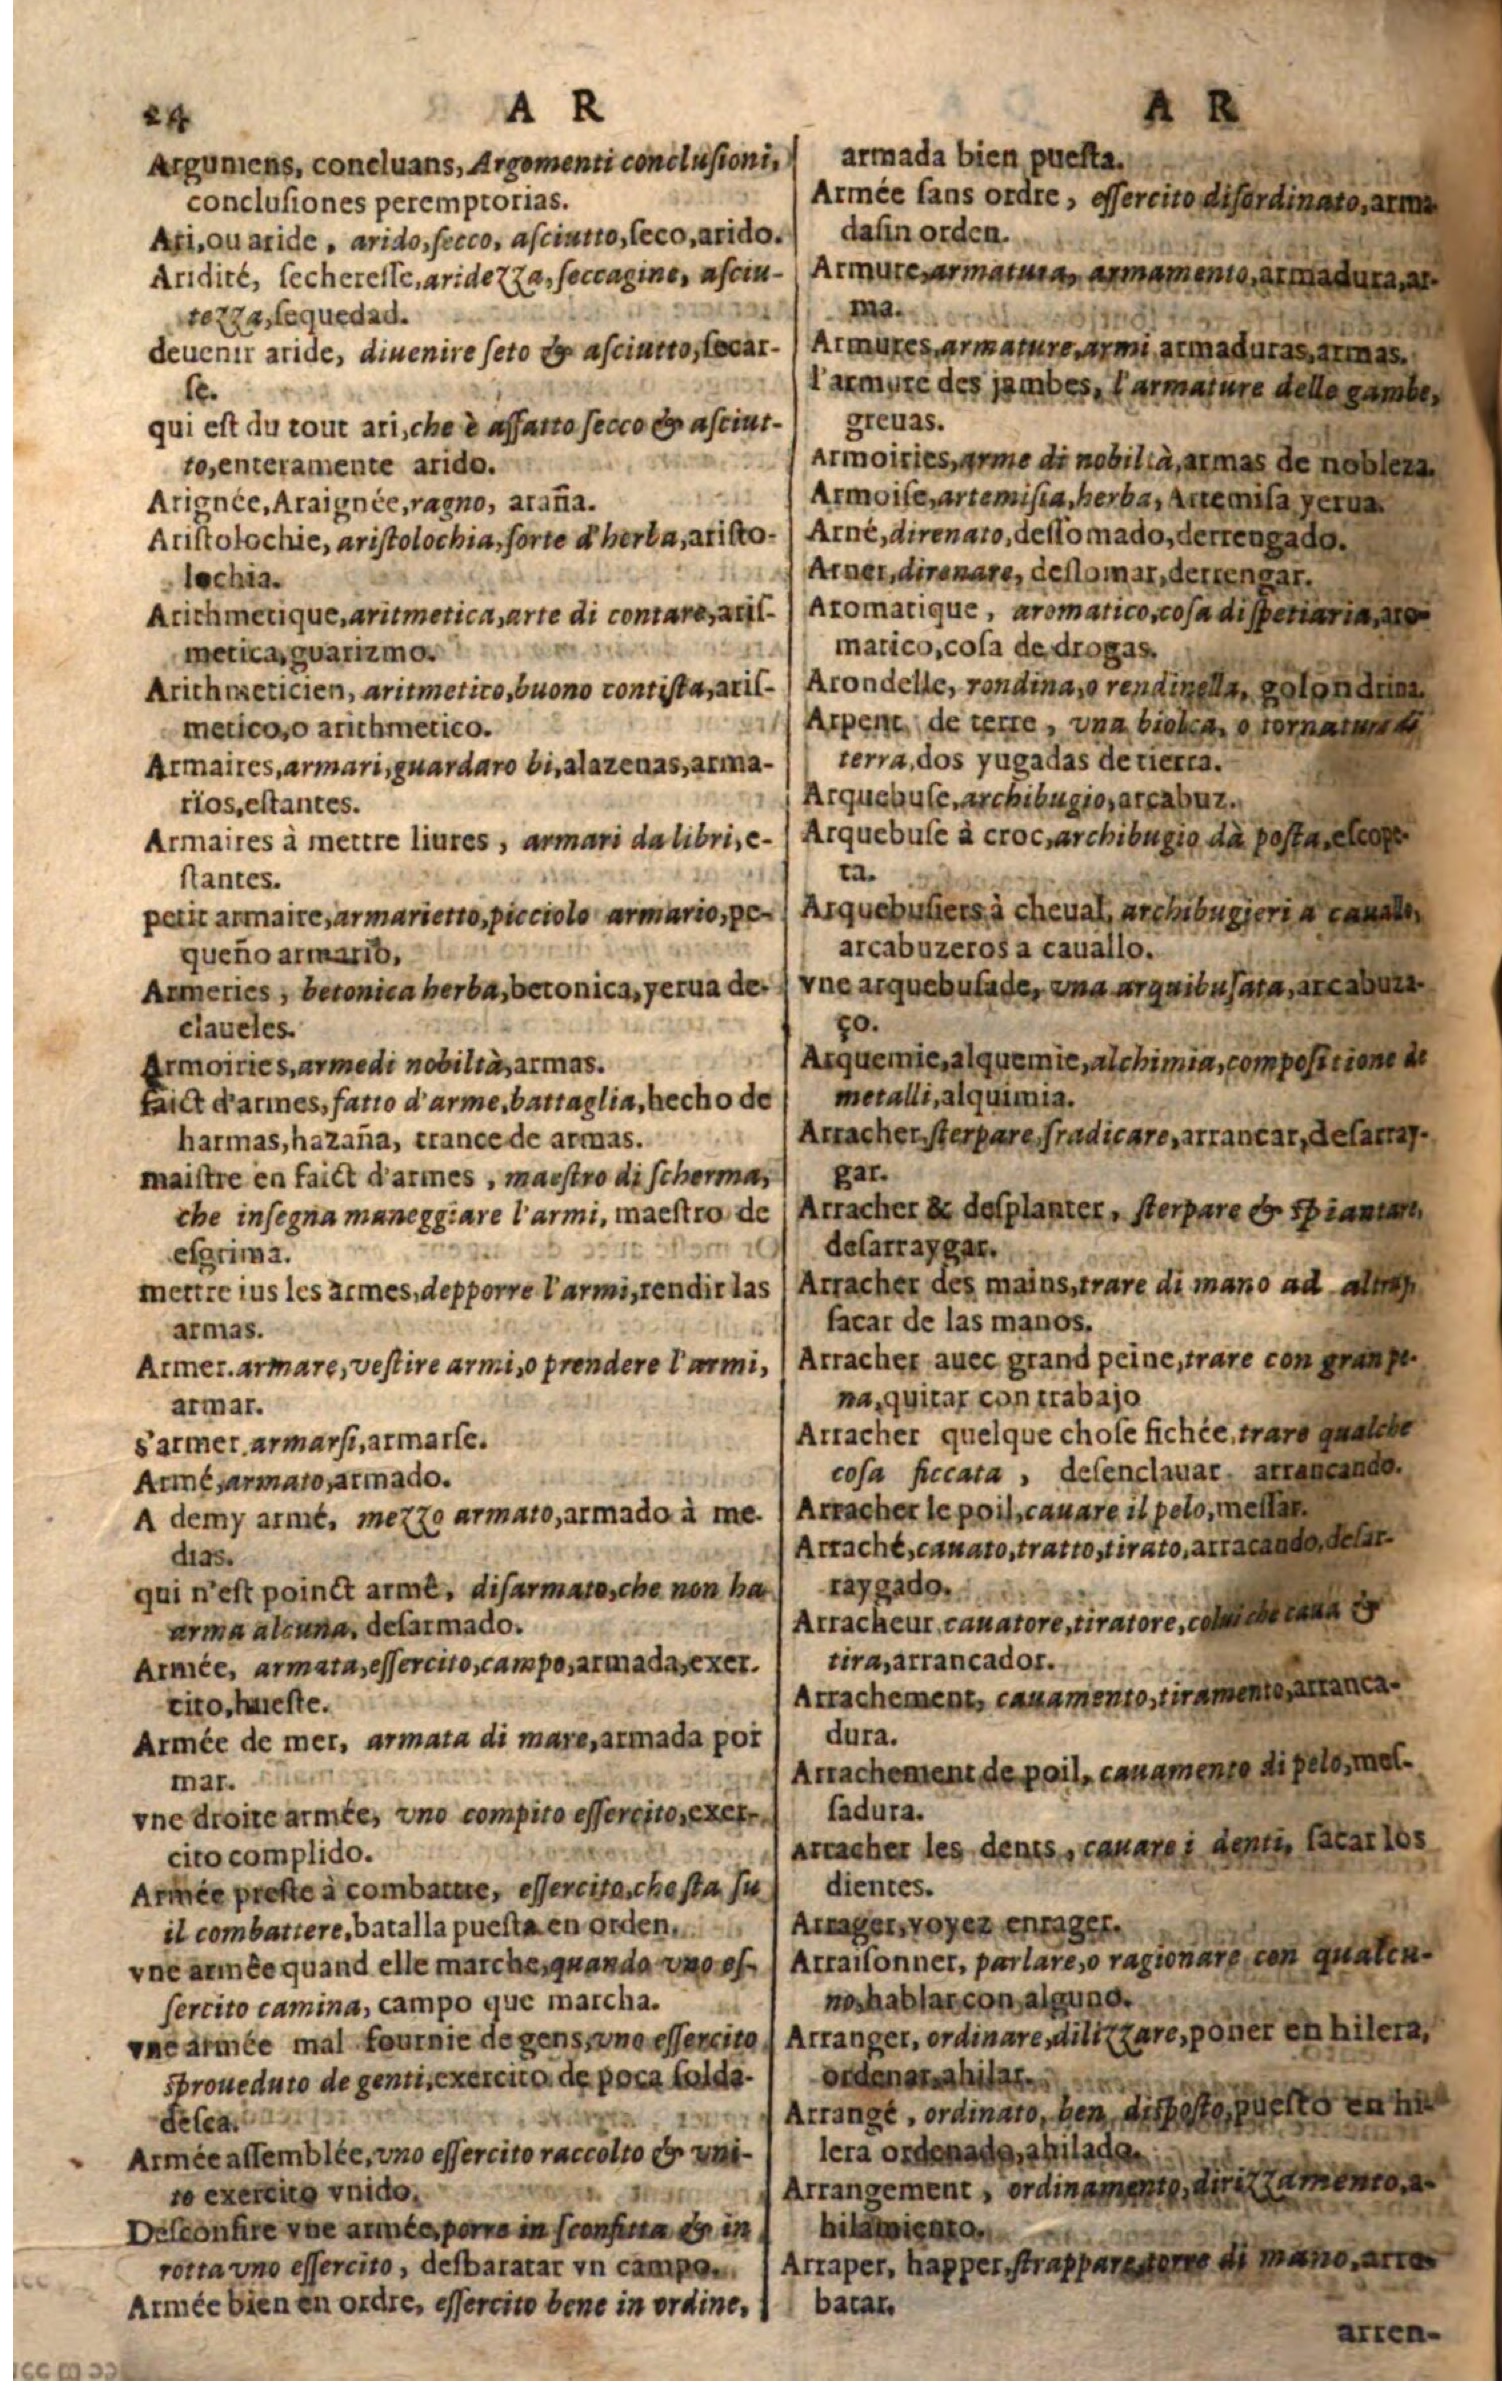 24 A R A R
Argumens, concluans, Argomenti conclusioni,
conclusiones peremptorias.
Ari, ou aride, arido, secco, asciutto, seco, arido.
Aridité, secheresse, aridezza, seccagine, asciu-
tezza, sequedad.
deuenir aride, diuenire seto & asciutto, secar-
se.
qui est du tout ari, che è affatto secco & asciut-
to, enteramente arido.
Arignée, Araignée, ragno, araña.
Aristolochie, aristolochia, sorte d'herba, aristo-
lochia.
Arithmetique, aritmetica, arte di contare, aris-
metica, guarizmo.
Arithmeticien, aritmetico, buono contista, aris-
metico, o arithmetico.
Armaires, armari, guardaro bi, alazenas, arma-
rios, estantes.
Armaires à mettre liures, armari da libri, e-
stantes.
petit armaire, armarietto, picciolo armario, pe-
queño armario,
Armeries, betonica herba, betonica, yerua de-
claueles.
Armoiries, arme di nobiltà, armas.
faict d'armes, fatto d'arme, battaglia, hecho de
harmas, hazaña, trance de armas.
maistre en faict d'armes, maestro di scherma,
che insegna maneggiare l'armi, maestro de
esgrima.
mettre ius les armes, depporre l'armi, rendir las
armas.
Armer. armare, vestire armi, o prendere l'armi,
armar.
s'armer, armarsi, armarse.
Armé, armato, armado.
A demy armé, mezzo armato, armado à me-
dias.
qui n'est poinct armé, disarmato, che non ha
arma alcuna, desarmado.
Armée, armata, essercito, campo, armada, exer-
cito, hueste.
Armée de mer, armata di mare, armada por
mar.
vne droite armée, vno compito essercito, exer-
cito complido.
Armée preste à combattre, essercito, che sta su
il combattere, batalla puesta en orden.
vne armée quand elle marche, quando vno es-
sercito camina, campo que marcha.
vne armée mal fournie de gens, vno essercito
sproueduto de genti, exercito de poca solda-
desca.
Armée assemblée, vno essercito raccolto & vni-
to exercito vnido.
Desconfire vne armée, porre in sconfitta & in
rotta vno essercito, desbaratar vn campo.
Armée bien en ordre, essercito bene in ordine,
armada bien puesta.
Armée sans ordre, essercito disordinato, arma
da sin orden.
Armure, armatura, armamento, armadura, ar-
ma.
Armures, armature, armi armaduras, armas.
l'armure des jambes, l'armature delle gambe,
greuas.
Armoiries, arme di nobiltà, armas de nobleza.
Armoise, artemisia, herba, Artemisa yerua.
Arné, direnato, deslomado, derrengado.
Arner, direnare, deslomar, derrengar.
Aromatique, aromatico, cosa di spetiaria, aro-
matico, cosa de drogas.
Arondelle, rondina, o rendinella, golondrina.
Arpent de terre, vna biolca, o tornatura di
terra, dos yugadas de tierra.
Arquebuse, archibugio, arcabuz.
Arquebuse à croc, archibugio dà posta, escope-
ta.
Arquebusiers à cheual, archibugieri a cauallo,
arcabuzeros a cauallo.
vne arquebusade, vna arquibusata, arcabuza-
ço.
Arquemie, alquemie, alchimia, compositione de
metalli, alquimia.
Arracher, sterpare, sradicare, arrancar, desarray-
gar.
Arracher & desplanter, sterpare & spiantare,
desarraygar.
Arracher des mains, trare di mano ad altrui,
sacar de las manos.
Arracher auec grand peine, trare con gran pe-
na, quitar con trabajo
Arracher quelque chose fichée, trare qualche
cosa ficcata, desenclauar arrancando.
Arracher le poil, cauare il pelo, messar.
Arraché, cauato, tratto, tirato, arracando, desar-
raygado.
Arracheur, cauatore, tiratore, colui che caua &
tira, arrancador.
Arrachement, cauamento, tiramento, arranca-
dura.
Arrachement de poil, cauamento di pelo, mes-
sadura.
Arracher les dents, cauare i denti, sacar los
dientes.
Arrager, voyez enrager.
Arraisonner, parlare, o ragionare con qualcu-
no, hablar con alguno.
Arranger, ordinare, dilizzare, poner en hilera,
ordenar, ahilar.
Arrangé, ordinato, ben disposto, puesto en hi-
lera ordenado, ahilado.
Arrangement, ordinamento, dirizzamento, a-
hilamiento.
Arraper, happer, strappare, torre di mano, arre-
batar.
arren-